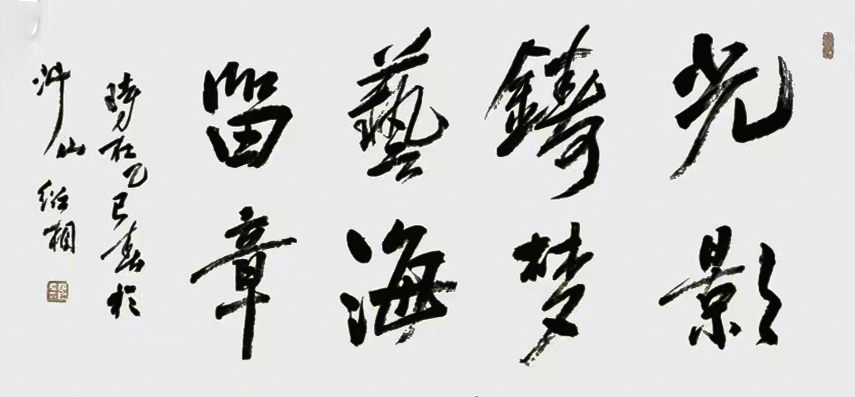 光影
鑄梦
藝海
留章
時在乙巳春於
山
相